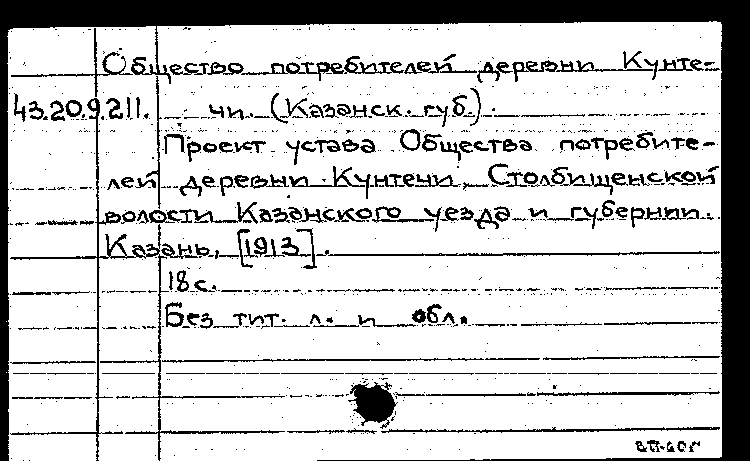 Общество потребителей деревни Кунте-
43.20.9.211. чи. (Казанск. губ.).
Проект устава Общества потребите-
лей деревни Кунтечи, Столбищенской
волости Казанского уезда и губернии.
Казань, [1913].
18 с.
Без тит. л. и обл.